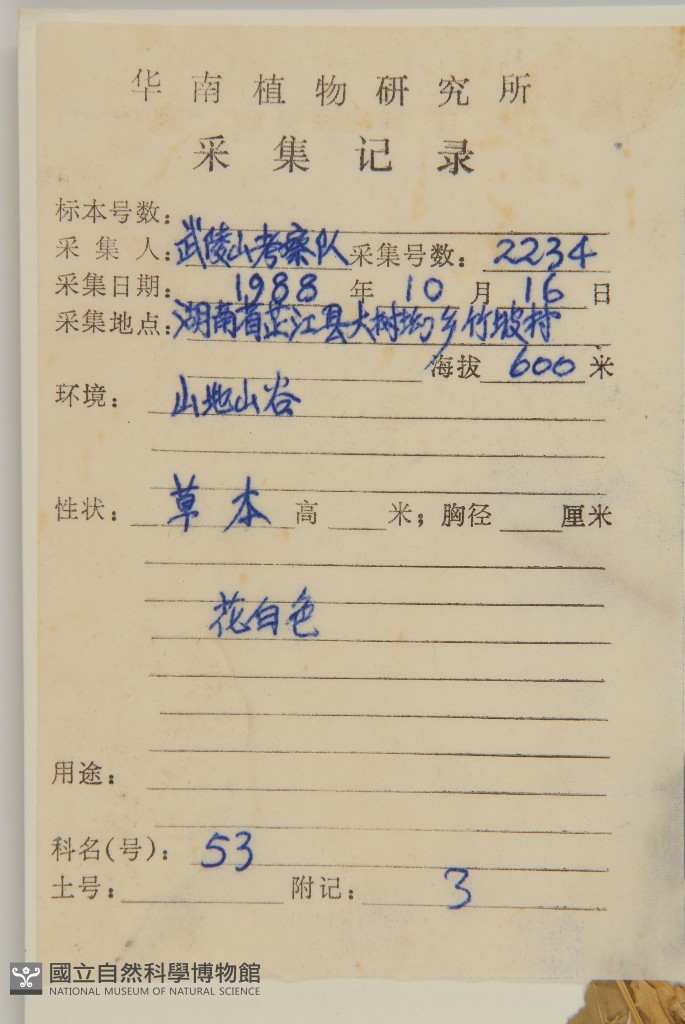 华南植物研究所
采集记录
标本号数:
采集人: 武陵山考察队 采集号数: 2234
采集日期: 1988 年 10 月 16 日
采集地点: 湖南省芷江县大树坳乡竹坡村
海拔 600 米
环境: 山地山谷
性状: 草本 高 米; 胸径 厘米
花白色
用途:
科名(号): 53
土号: 附记: 3
國立自然科學博物館
NATIONAL MUSEUM OF NATURAL SCIENCE